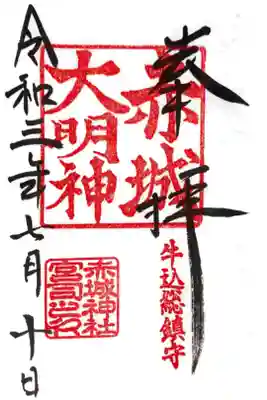 奉拝
赤城
大明神
牛込総鎮守
赤城神社
宮司之印
令和三年七月十日